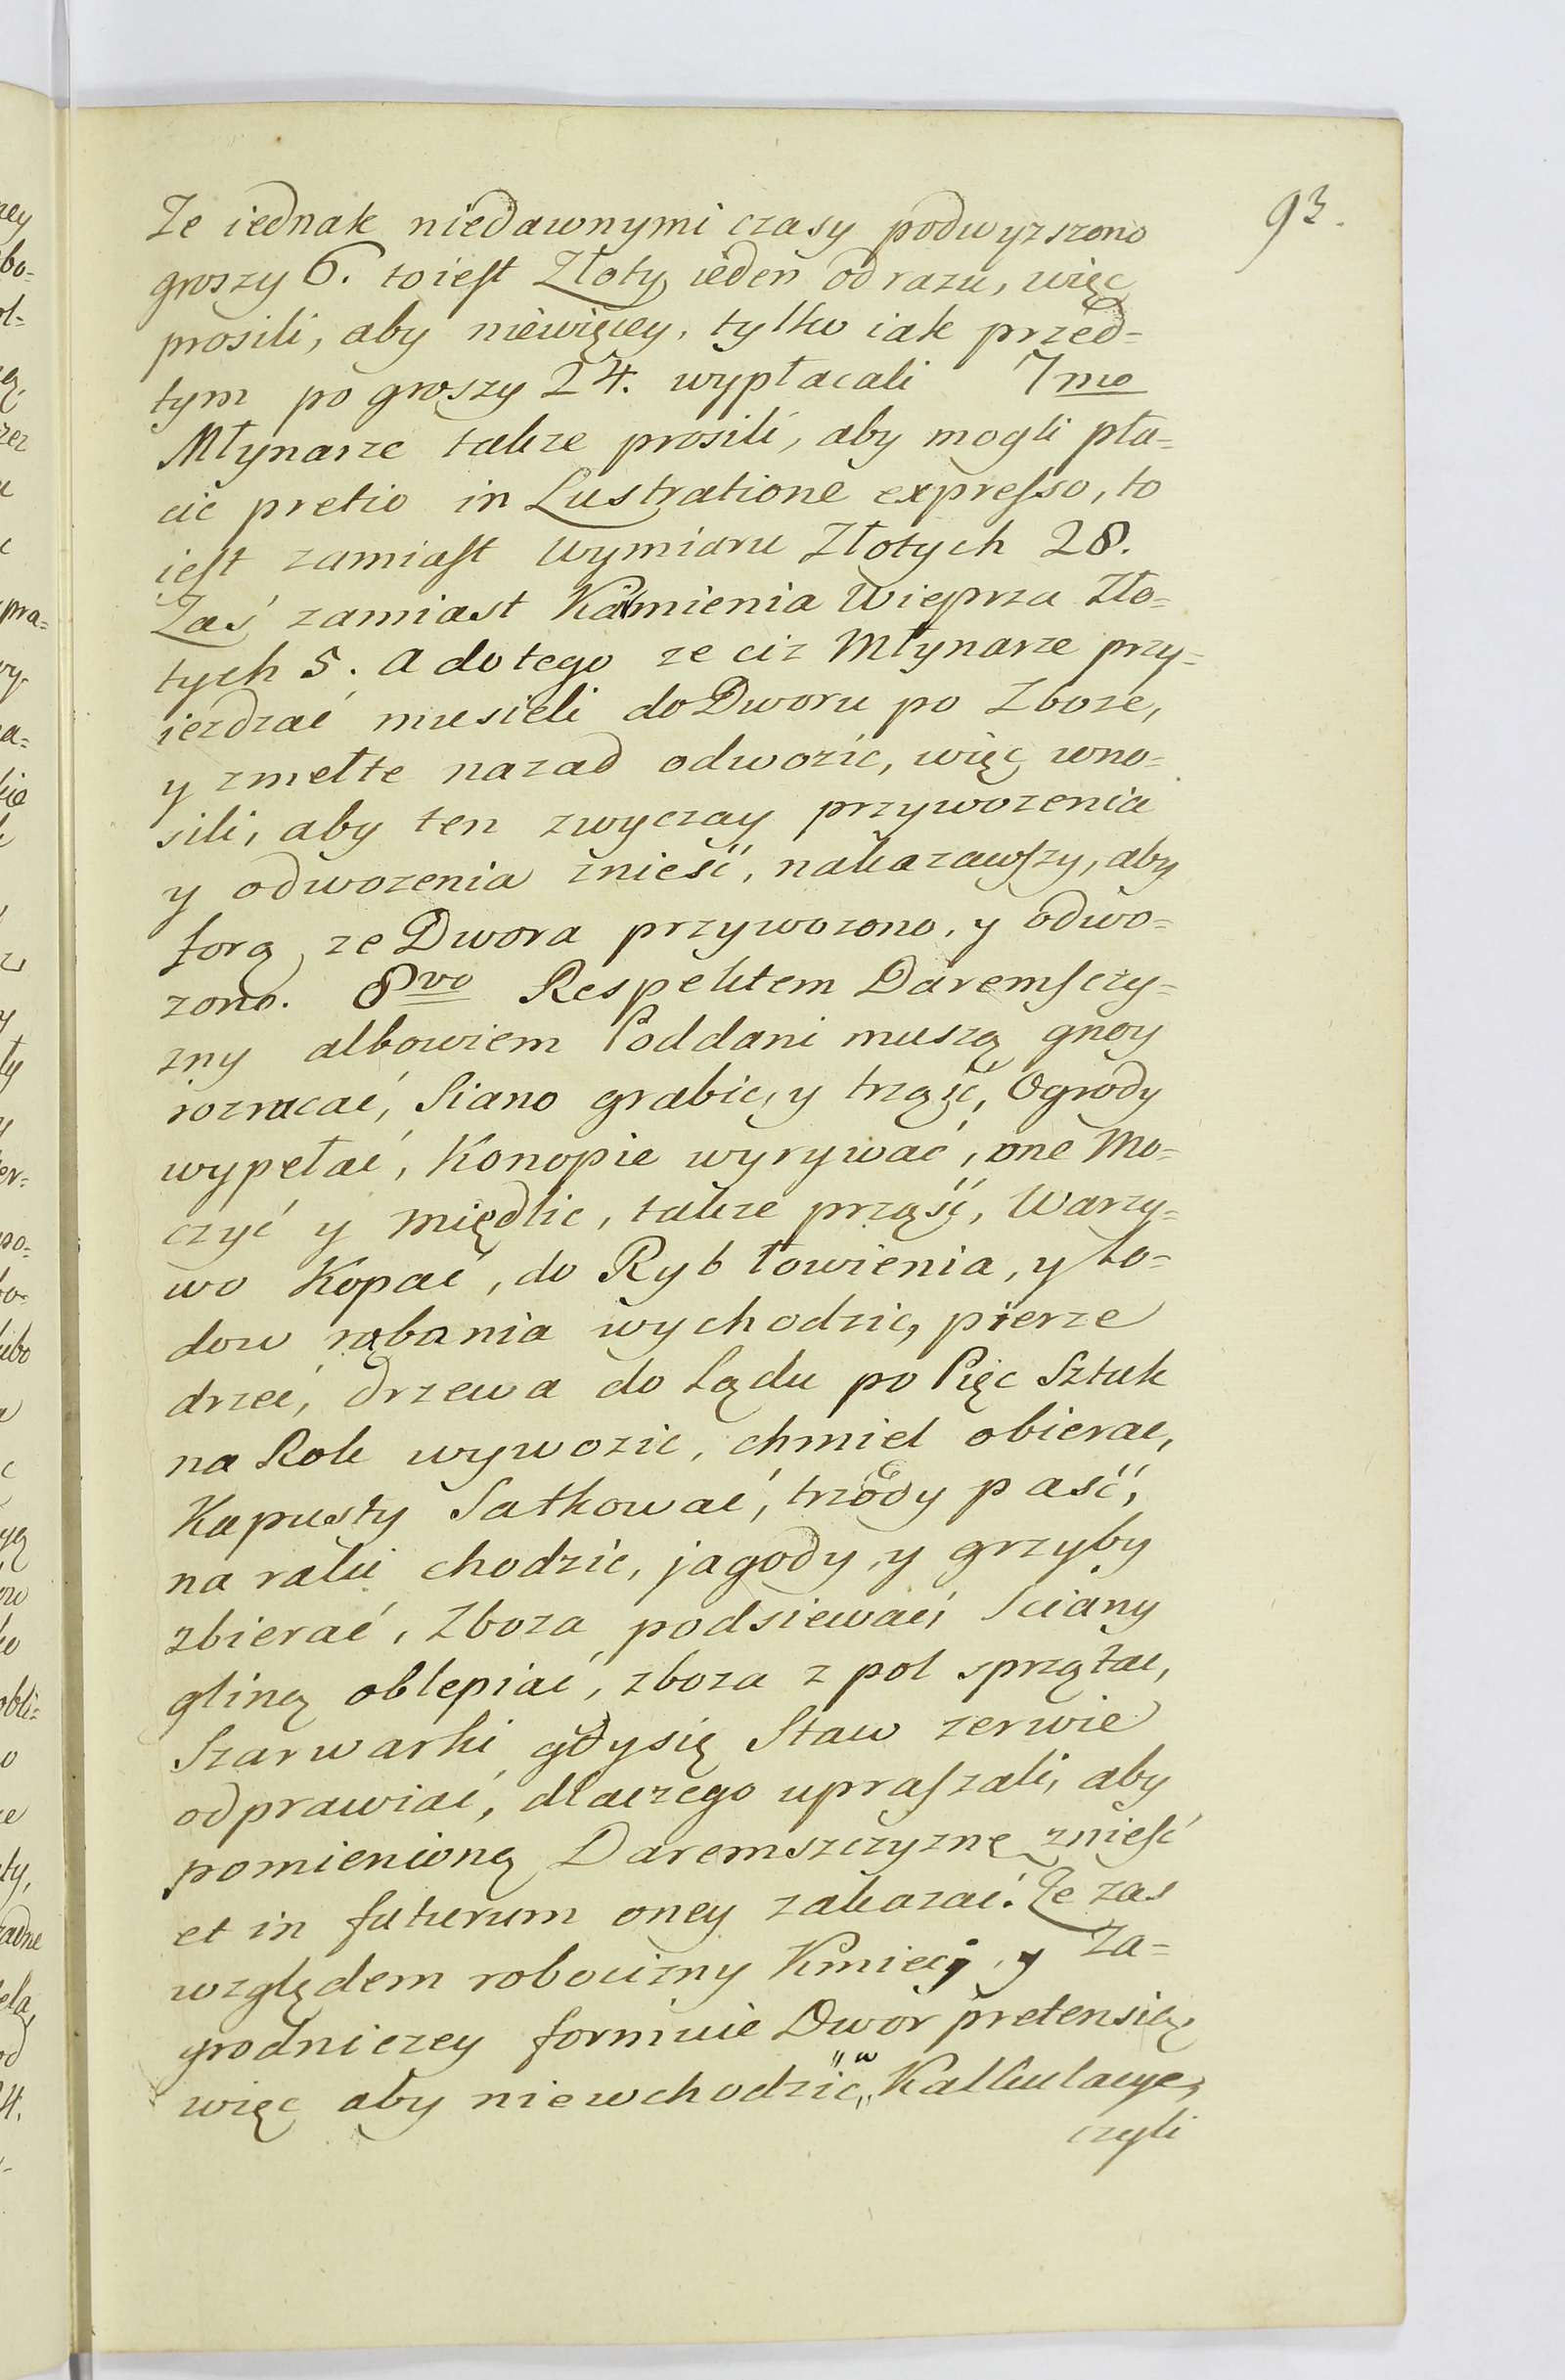 93.
Ze iednak niedawnymi czasy podwyzszono
groszy 6. to iest Złoty ieden od razu, więc
prosili, aby niewięcey, tylko iak przed=
tym po groszy 24. wypłacali 7mo
Młynarze takze prosili, aby mogli pła=
cic pretio in Lustratione expresso, to
iest zamiast wymiaru Złotych 28.
Zaś zamiast Kamienia Wieprza Zło=
tych 5. a do tego ze ciz Młynarze przy=
iezdzać musieli do Dworu po Zboze,
y zmełte nazad odwozic, więc wno=
sili, aby ten zwyczay przywozenia
y odwozenia znieść, nakazawszy, aby
forą ze Dwora przywozono, y odwo=
zono. 8vo Respektem Daremsczy=
zny albowiem Poddani muszą gnoy
rozrucać, Siano grabic, y trząść, Ogrody
wypełać, Konopie wyrywać, one Mo=
czyć y międlic, takze prząść, Warzy=
wo Kopać, do Ryb łowienia, y Lo=
dow rąbania wychodzic, pierze
drzeć, drzewa do Lądu po Pięc Sztuk
na Rok wywozic, chmiel obierac,
Kapusty Satkować, trzody paść,
na raki chodzic, jagody, y grzyby
zbierać, Zboza podsiewać, Sciany
gliną oblepiać, zboza z pol sprzątac,
Szarwarki gdysię Staw zerwie
odprawiać, dlaczego upraszali, aby
pomienioną Daremszczyznę znieść
et in futurum oney zakazać. Ze zas
względem robocizny Kmiecy, y Za=
grodniczey formuie Dwor pretensią,
więc aby niewchodzic „w„ Kalkulacye,
czyli